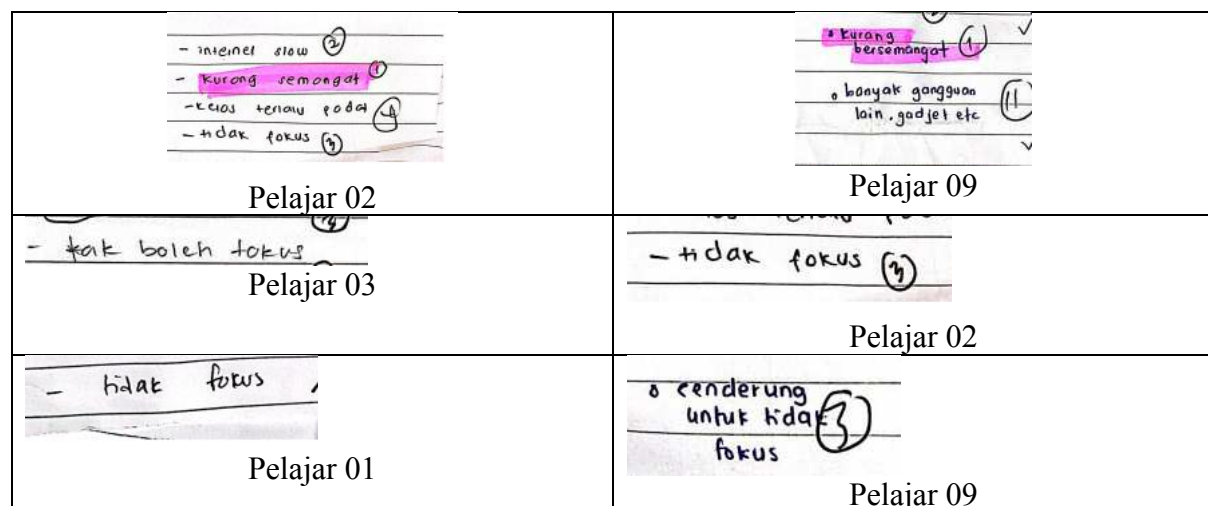 - internel slow ②
- kurang semangat ①
- kelas terlalu padat ④
- tidak fokus ③
Pelajar 02
• kurang
bersemangat ①
• banyak gangguan
lain. gadjet etc ⑪
Pelajar 09
- tak boleh fokus
Pelajar 03
- tidak fokus ③
Pelajar 02
- tidak fokus
Pelajar 01
• cenderung
untuk tidak ③
fokus
Pelajar 09